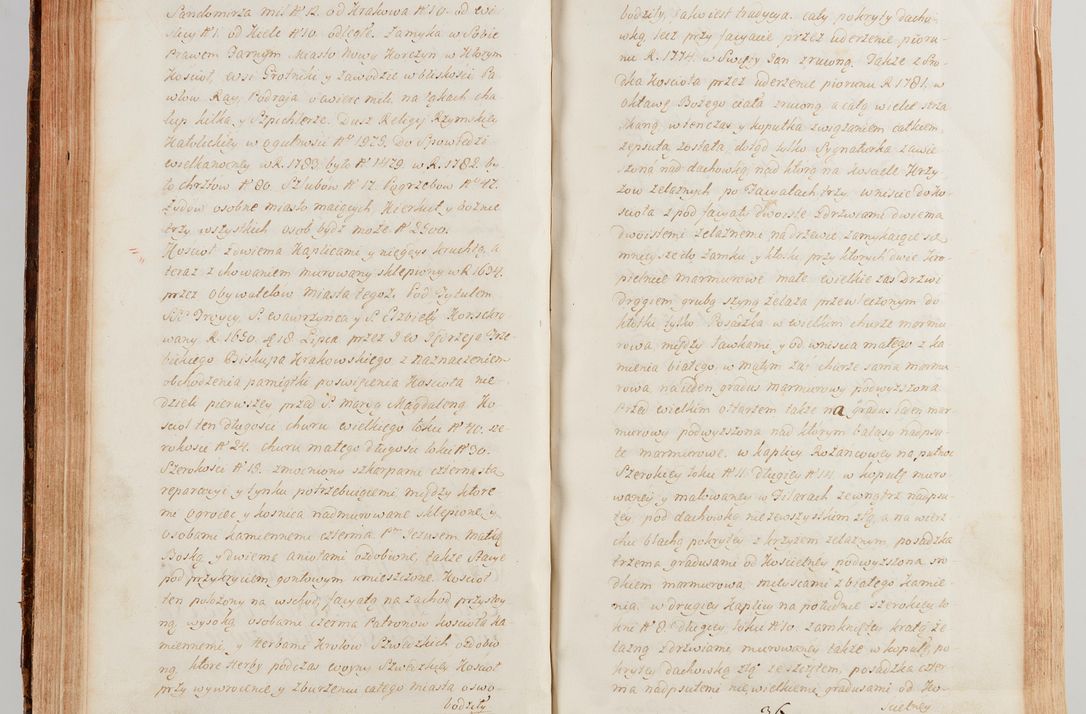 Sandomirza mil N° 12. od Krakowa N° 10. od Wi-
ślicy N° 1. od Kielc N° 10. odległe. Zamyka w Sobie
Prawem Farnym Miasto Nowy Korczyn w Którym
Kościoł, wsi Grotniki y Zawodzie w bliskości Pa-
włow Kąy, Podraja o ćwierc mili, na łąkach cha-
łup kilka y Szpichlerze. Dusz Religij Rzymskiey
Katolickiey w ogulności N° 1978. do Spowiedzi
wielkanocney w R. 1783. było N° 1479. w R. 1782. by-
ło chrztów N° 80. Szlubów N° 17. Pogrzebów N° 47.
Żydów osobne miasto maiących, Kierkut y bożnie
trzy, wszystkich osob bydź może N° 2500.
Kościoł z dwiema Kaplicami y niegdys kruchtą, a
teraz z chowaniem murowany sklepiony w R. 1634.
przez Obywatelow Miasta tegoż, Pod Tytułem
Sw. Troycy, S. Wawrzyńca y S. Elzbiety, Konsekro-
wany R. 1650. d. 18 Lipca przez J. W. Jędrzeja Trze-
bickiego Biskupa Krakowskiego z naznaczeniem
obchodzenia pamiątki poswięcenia Kościoła nie-
dzieli pierwszey przed S. Maryą Magdaleną. Ko-
scioł ten długości churu wielkiego łokci N° 40. sze-
rokości N° 24. churu małego długości łokci N° 30.
Szerokości N° 18. zmocniony szkarpami czterma, ba
reparacyi y tynku potrzebuiącemi, między które-
mi ogroiec y kosnica nadmurowane sklepione, y
osobami kamiennemi czterma Pm Jezusem Matką
Boską y dwiema aniołami ozdobione, także Stacye
pod przykryciem gontowym umieszczone. Kościoł
ten położony na wschod, facyatą na zachod przystoy-
ną wysoką osobami czterma Patronow Kościoła ka-
miennemi y Herbami Krolow Szwedzkich ozdobio-
ną, które Herby podczas woyny Szwedzkiey Kościoł
przy wywroceniu y zburzeniu całego miasta oswo-
bodziły
bodziły, jako iest tradycya. cały pokryty dacho-
wką, lecz przy facyacie przez uderzenie pioru-
nu R. 1774. w Święty Jan zruciną. Także z Sro-
dka Kościoła przez uderzenie piorunu R. 1781. w
oktawę Bożego Ciała zruciną, a cały wielce strza-
skaną, wtenczas y kopułka z wiązaniem całkiem
zepsuta została, dotąd tylko Sygnaturka zawie-
szona nad dachowką, nad którą na Kościele Krzy-
żow żelaznych po Facyatach trzy, wniscie do Ko-
scioła z pod facyaty dwoiste z drzwiami dwiema
dwoistemi żelaznemi, na drzewie zamykaiące się
mnieysze do zamku y kłotki, przy których dwie kro-
pielnice marmurowe małe, wielkie zaś drzwi
drągiem grubą szyną żelaza przewleczonym do
kłotki tylko. Posadzka w wielkim churze marmu-
rowa między ławkami, y od wniścia małego z ka-
mienia białego, w małym zaś churze sama marmu-
rowa na jeden gradus marmurowy podwyższona.
Przed wielkim ołtarzem także na gradus jeden mar-
murowy podwyższona nad którym balasy nadpsu-
te marmurowe. w kaplicy Rożancowey na pułnoc
Szerokiey łokci N° 11. długiey N° 14. w kopułę muro-
waney y malowaney w Filarach zewnątrz nadpsu-
tey, pod dachowką nie zewszystkim złą, a na wierz-
chu blachą pokrytey z krzyżem żelaznym, posadzka
trzema gradusami od Kościelney podwyższona, śro-
dkiem marmurowa, mieyscami z białego kamie-
nia. w drugiey Kaplicy na południe szerokiey ło-
kci N° 8. długiey łokci N° 10. zamkniętey kratą że-
lazną z drzwiami, murowaney także w kopułę, po-
krytey dachowką złą, ze szczytem, posadzka czter-
ma nadpsutemi niewielkiemi gradusami od Ko-
36
scielney